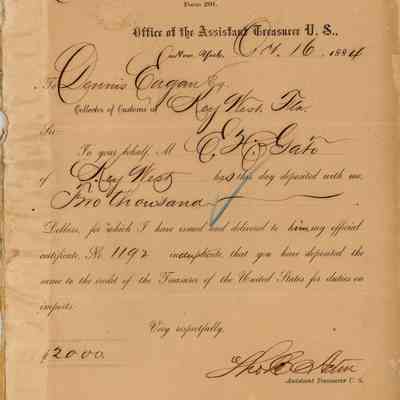 Form 201.
Office of the Assistant Treasurer U. S.,
New York, Oct. 16, 1884
To Dennis Eagan Esq
Collector of Customs at Key West, Fla
Sir:
In your behalf, M E. H. Gato
of Key West has this day deposited with me,
Two thousand
Dollars, for which I have issued and delivered to him my official
certificate, No. 1192 in duplicate, that you have deposited the
same to the credit of the Treasurer of the United States for duties on
imports.
Very respectfully,
$2000.
Assistant Treasurer U. S.